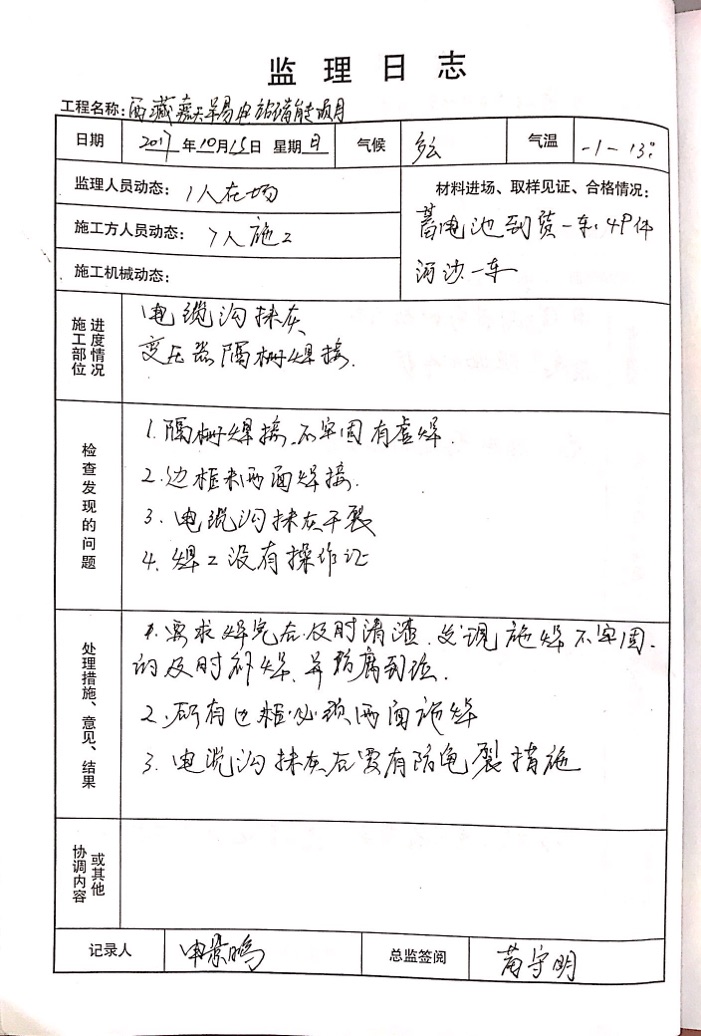 监理日志
工程名称:西藏 羊易电站储能项目
日期 2017年10月15日 星期日 气候 多云 气温 -1-13°
监理人员动态: 1人在场
材料进场、取样见证、合格情况:
施工方人员动态: 7人施工
蓄电池到货一车:49件
施工机械动态:
河沙一车
进度情况
施工部位
电缆沟抹灰
变压器隔栅焊接.
检查发现的问题
1.隔栅焊接不牢固有虚焊.
2.边框未两面焊接.
3.电缆沟抹灰干裂
4.焊工没有操作证
处理措施、意见、结果
1.要求焊完后及时清渣.发现施焊不牢固.
的及时补焊、并防腐到位.
2.所有边框必须两面施焊
3.电缆沟抹灰后要有防龟裂措施
或其他
协调内容
记录人 申景鹏 总监签阅 守明